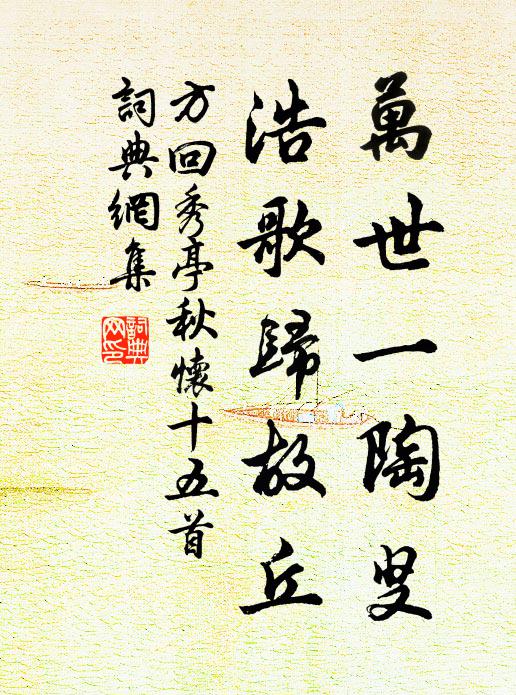 萬世一陶叟
浩歌歸故丘
方回秀亭秋懷十五首
詞典網集
詞典网印